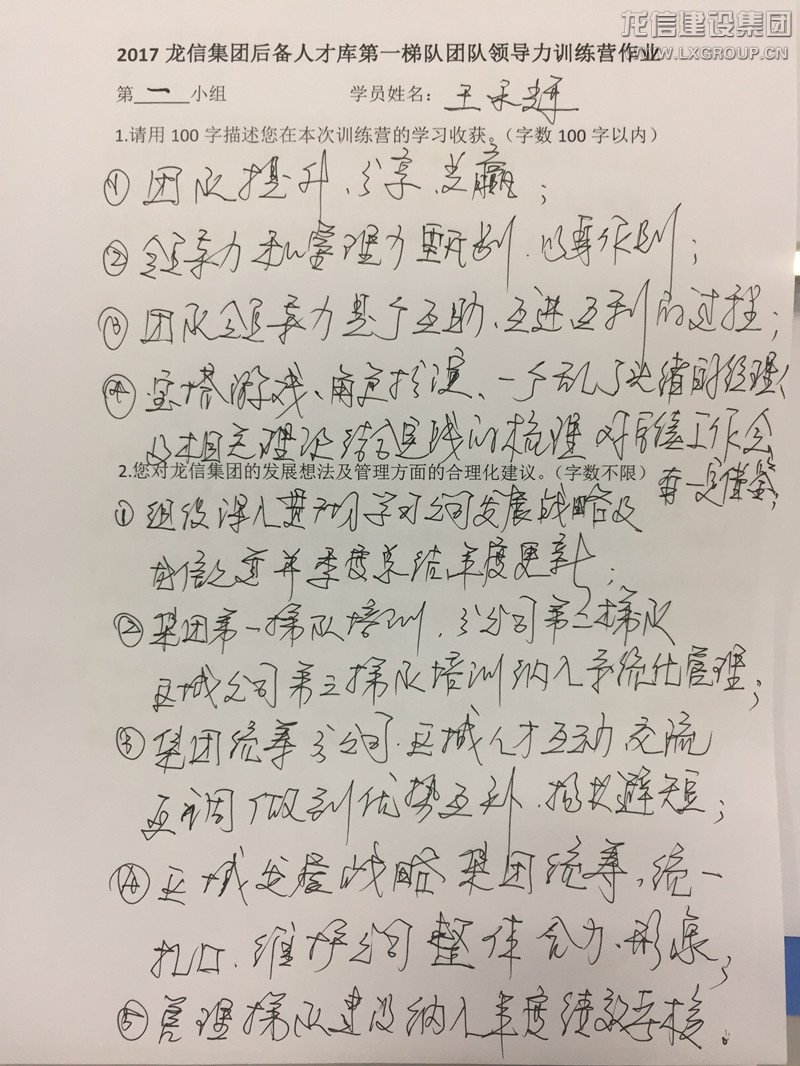 龙信建设集团
WWW.LXGROUP.CN
2017 龙信集团后备人才库第一梯队团队领导力训练营作业
第 一 小组 学员姓名：王
1.请用 100 字描述您在本次训练营的学习收获。（字数 100 字以内）
① 团队提升、分享、共赢；
② 领导力和管理力甄别、以身作则；
③ 团队领导力是个互助、互进、互利的过程；
④ 宝塔游戏、角色扮演、一个乱了头绪的经理人
及相关理论结合实践的梳理 对后续工作会
有一定借鉴；
2.您对龙信集团的发展想法及管理方面的合理化建议。（字数不限）
① 组织深入贯彻学习公司发展战略及
龙信之道并季度总结年度更新；
② 集团第一梯队培训、分公司第二梯队
区域公司第三梯队培训纳入系统化管理；
③ 集团统筹分公司、区域人才互动交流
互调 做到优势互补、扬长避短；
④ 区域发展战略集团统筹、统一
扎口、维护公司整体合力、形象；
⑤ 管理梯队建设纳入年度绩效考核。